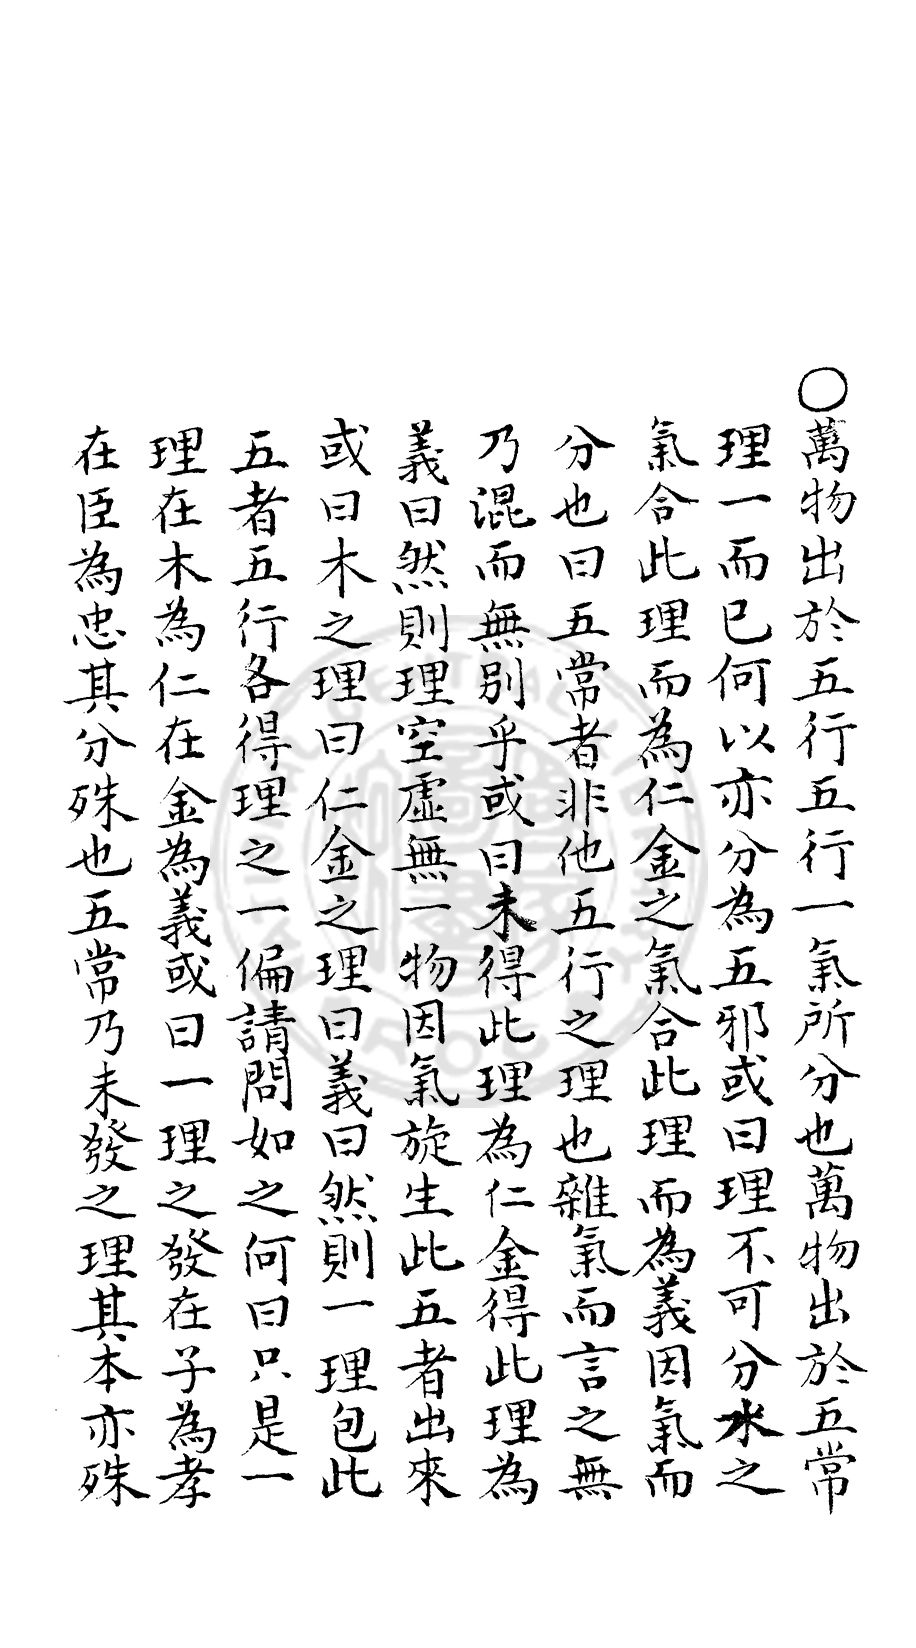 ○萬物出於五行五行一氣所分也萬物出於五常
理一而已何以亦分為五邪或曰理不可分水之
氣合此理而為仁金之氣合此理而為義因氣而
分也曰五常者非他五行之理也雜氣而言之無
乃混而無別乎或曰未得此理為仁金得此理為
義曰然則理空虛無一物因氣旋生此五者出來
或曰木之理曰仁金之理曰義曰然則一理包此
五者五行各得理之一偏請問如之何曰只是一
理在木為仁在金為義或曰一理之發在子為孝
在臣為忠其分殊也五常乃未發之理其本亦殊